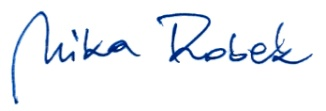 Mika Robek